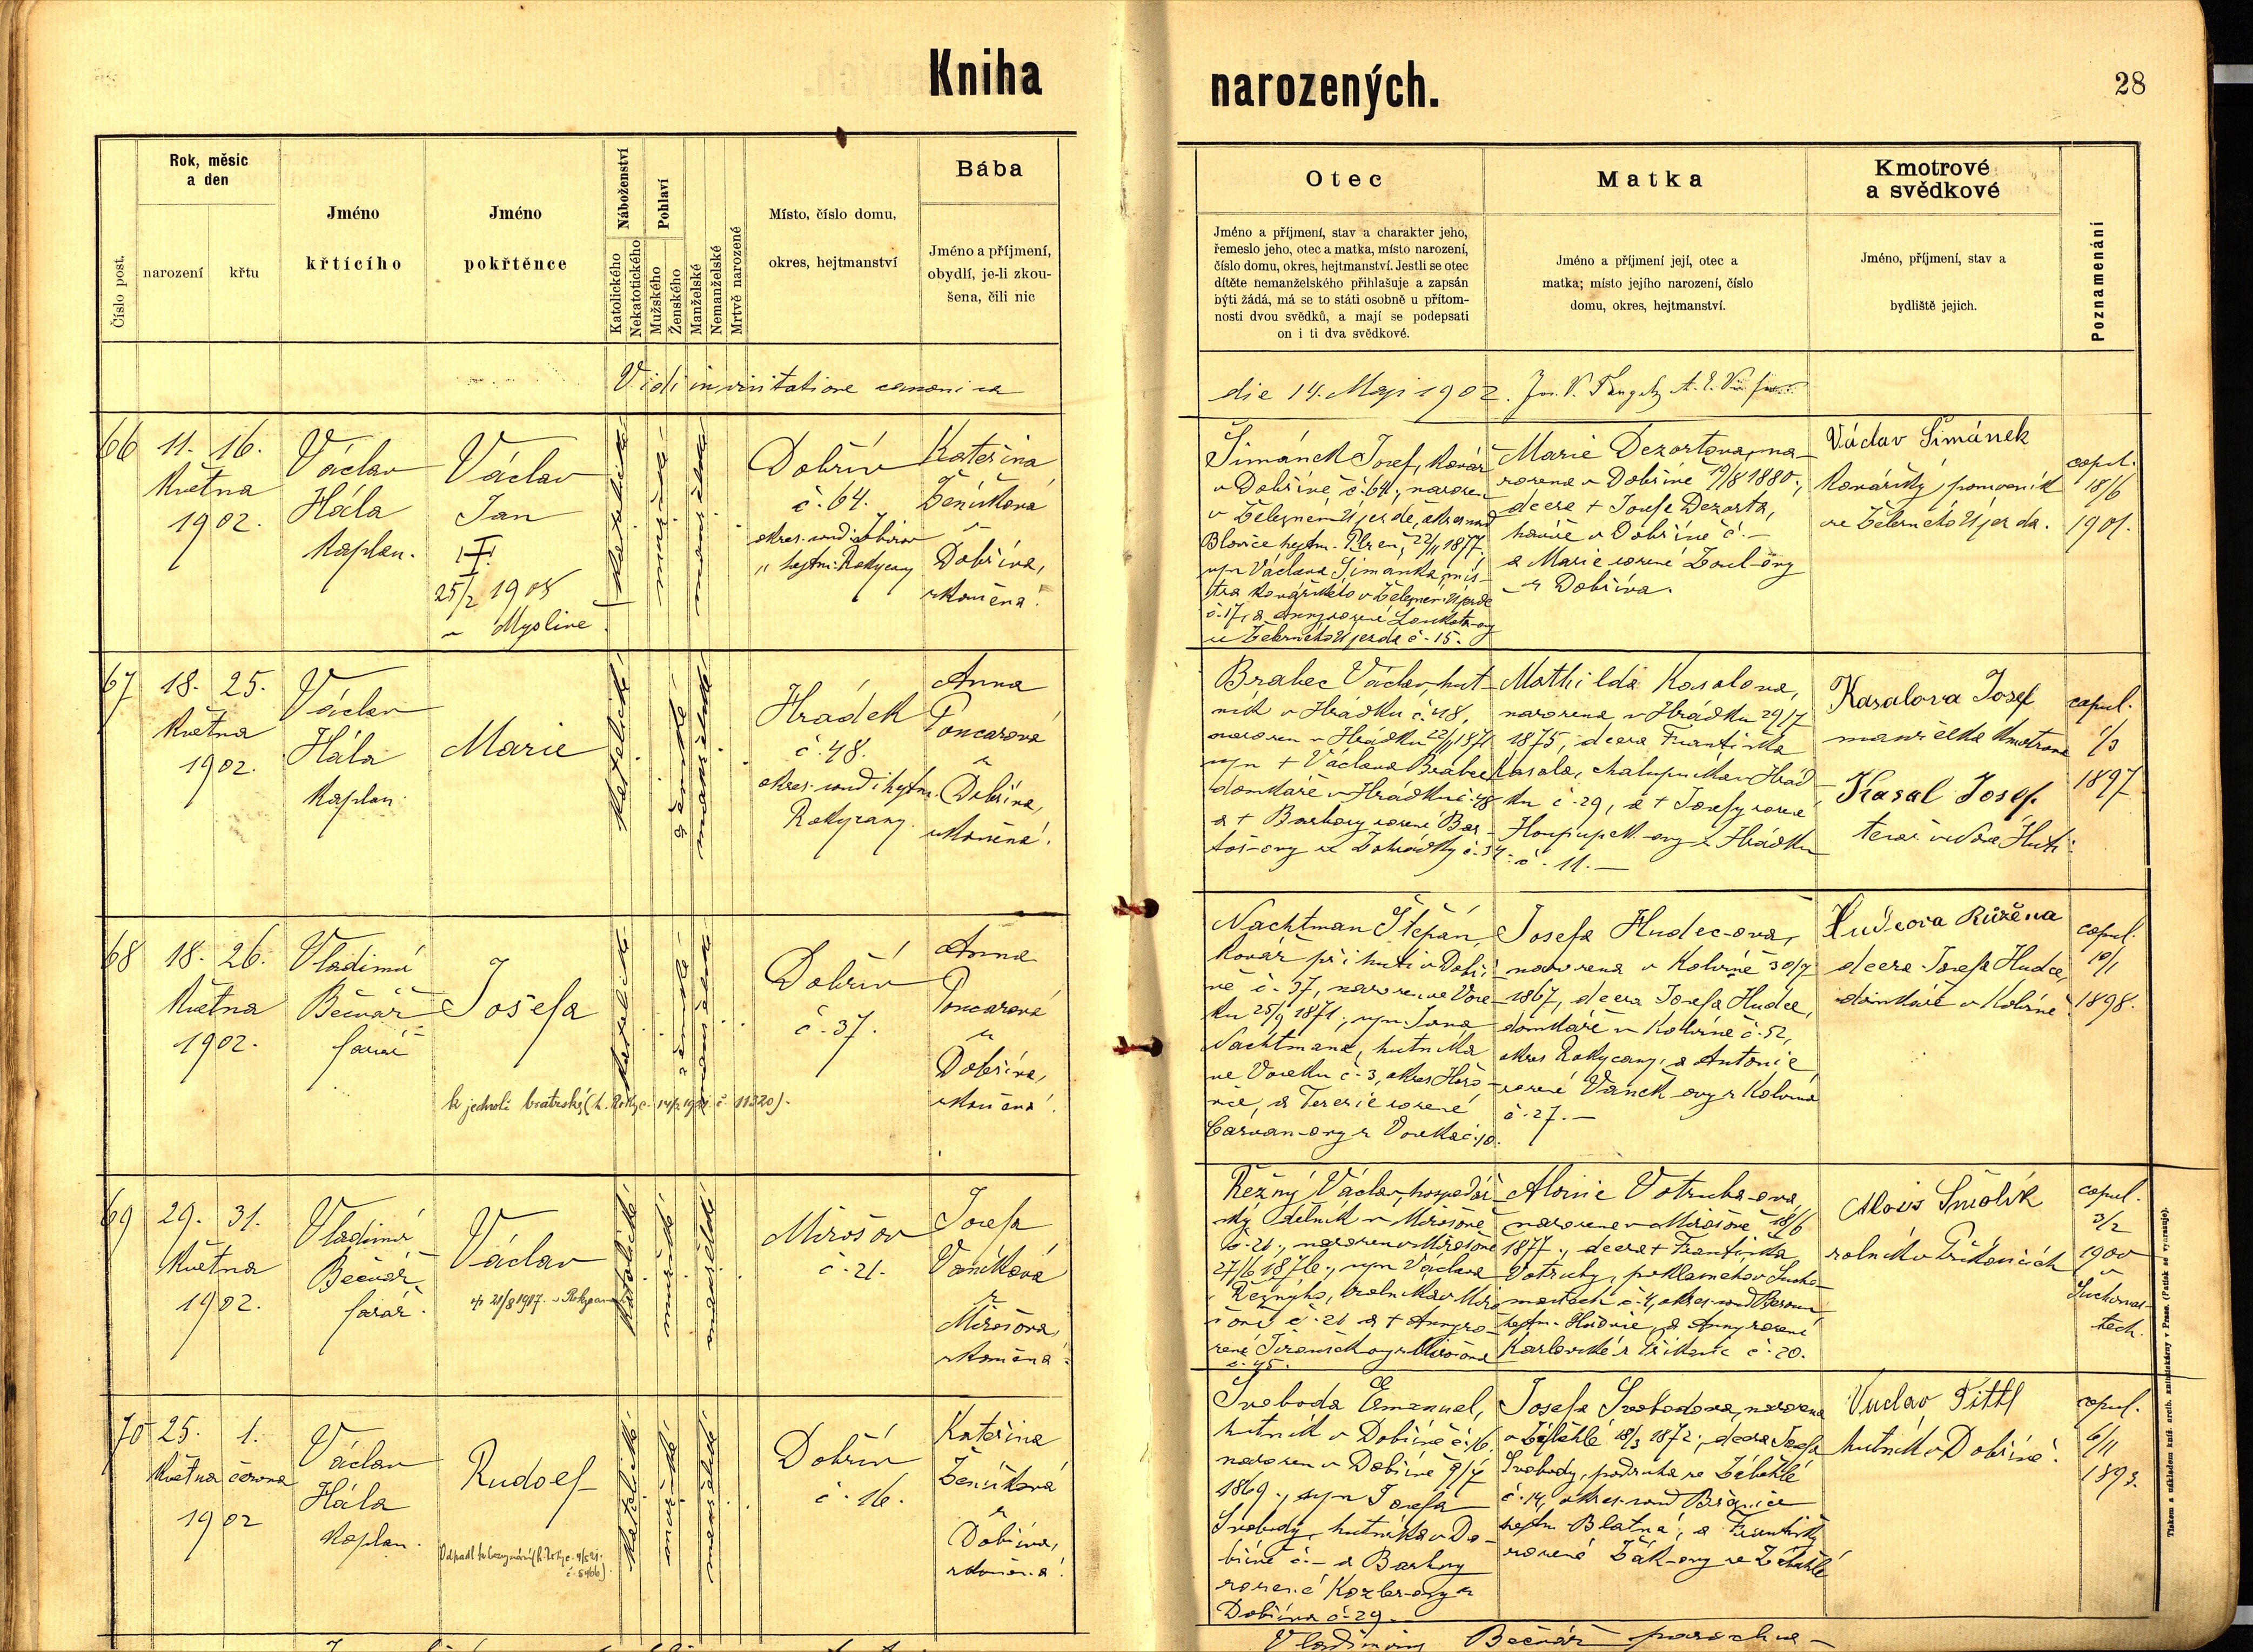 Kniha narozených.
28
Číslo post.
Rok, měsíc
a den
narození
křtu
Jméno
křtícího
Jméno
pokřtěnce
Náboženství
Katolického
Nekatotického
Pohlaví
Mužského
Ženského
Manželské
Nemanželské
Mrtvě narozené
Místo, číslo domu,
okres, hejtmanství
Bába
Jméno a příjmení,
obydlí, je-li zkou-
šena, čili nic
Otec
Jméno a příjmení, stav a charakter jeho,
řemeslo jeho, otec a matka, místo narození,
číslo domu, okres, hejtmanství. Jestli se otec
dítěte nemanželského přihlašuje a zapsán
býti žádá, má se to státi osobně u přítom-
nosti dvou svědků, a mají se podepsati
on i ti dva svědkové.
Matka
Jméno a příjmení její, otec a
matka; místo jejího narození, číslo
domu, okres, hejtmanství.
Kmotrové
a svědkové
Jméno, příjmení, stav a
bydliště jejich.
Poznamenání
Vidi in visitatione canonica
die 14. Maji 1902.
66
11. 16.
Května
1902.
Václav
Hála
Kaplan.
Václav
Jan
25/2 1905
v Myslivě
katolické
mužské
manželské
Dobřív
č. 64.
okres. soud Zbiroh
" hejtm. Rokycany
Kateřina
Ženíšková
z
Dobříva,
zkoušená.
Šimánek Josef, kovář
v Dobřívě č. 64., narozen
v Železném Újezdě, okres soud
Blovice hejtm. Plzeň, 22/11 1877.
syn Václava Šimánka, mis-
tra kovářského v Železném Újezdě
č. 17, a Anny rozené
z Železného Újezda č. 15.
Marie Dezortova, na-
rozena v Dobřívě 19/8 1880.,
dcera + Josefa Dezorta,
v Dobřívě č. -
a Marie rozené
z Dobříva.
Václav Šimánek
kovářský pomocník
ze Železného Újezda.
copul.
18/6
1901.
67
18. 25.
Května
1902.
Václav
Hála
Kaplan
Marie
katolické
ženské
manželské
Hrádek
č. 48.
okres. soud i hejtm.
Rokycany.
Anna
Poncarová
z
Dobříva,
zkoušená.
Brabec Václav, hut-
ník v Hrádku č. 48,
narozen v Hrádku 22/1 1871
syn + Václava Brabce
domkáře v Hrádku č. 48
a + Barbory rozené Bar-
toš-ovy ze Zahrádky č. 34.
Mathilda Kasalova,
narozena v Hrádku 29/7
1875, dcera Františka
Kasala, chalupníka v Hrád-
ku č. 29, a + Josefy rozené
Houpupek-ovy z Hrádku
č. 11. -
Kasalova Josef
manželka kmotrova
Kasal Josef
tesař v Nové Huti
copul.
1/3
1897
68
18. 26.
Května
1902.
Vladimír
Bečvář
farář
Josefa
k jednotě bratrské
katolické
ženské
manželské
č. 11320).
Dobřív
č. 37.
Anna
Poncarová
z
Dobříva,
zkoušená.
Nachtman Štěpán,
kovář při huti v Dobří-
vě č. 37, narozen ve Vose-
ku 25/9 1871., syn Jana
Nachtmana, hutníka
ve Voseku č. 3, okres Hořo-
vice, a Terezie rozené
Josefa Hudec-ova,
narozena v Kolvíně 30/7
1867, dcera Josefa Hudce,
domkáře v Kolvíně č. 52,
okres Rokycany, a Antonie
rozené Vaněk-ovy z Kolvína
č. 27. -
Hudcova Růžena
dcera Josefa Hudce,
domkáře v Kolvíně.
copul.
10/1
1898.
69
29. 31.
Května
1902.
Vladimír
Bečvář
farář.
Václav
21/8 1907. v Rokycan
katolické
mužské
manželské
Mirošov
č. 21.
Josefa
Vaníková
z
Mirošova,
zkoušená.
Řežný Václav, hospodář-
ský dělník v Mirošově
č. 21., narozen v Mirošově
27/6 1876., syn Václava
Řežnýho, rolníka v Miro-
šově č. 21 a + Anny ro-
zené Jiroušek-ovy z Mirošova
č. 45.
Aloisie Votruba-ova,
narozena v Mirošově 18/6
1877., dcera + Františka
Votruby, v Sucho-
mastech č. 4, okres. soud Beroun
hejtm. Hořovice, a Anny rozené
Karlovské z č. 20.
Alois Smolík
rolník v
copul.
3/2
1900
v
Suchomas-
tech.
70
25. 1.
Května června
1902
Václav
Hála
Kaplan.
Rudolf
Odpadl
katolické
mužské
manželské
Dobřív
č. 16.
Kateřina
Ženíšková
z
Dobříva,
zkoušená.
Svoboda Emanuel,
hutník v Dobřívě č. 16.
narozen v Dobřívě 9/7
1869., syn Josefa
Svobody, hutníka v Do-
břívě č. - a Barbory
rozené Kozler-ovy z
Dobříva č. 29.
Josefa Svobodova, narozena
v Záběhlé 18/3 1872., dcera Josefa
Svobody, podruha ze Záběhlé
č. 14, okres. soud Březnice
hejtm. Blatná, a Františky
rozené Žák-ovy ze Záběhlé
Vaclav Tittl
hutník v Dobřívě.
copul.
6/11
1893.
Vladimírus Bečvář parochus